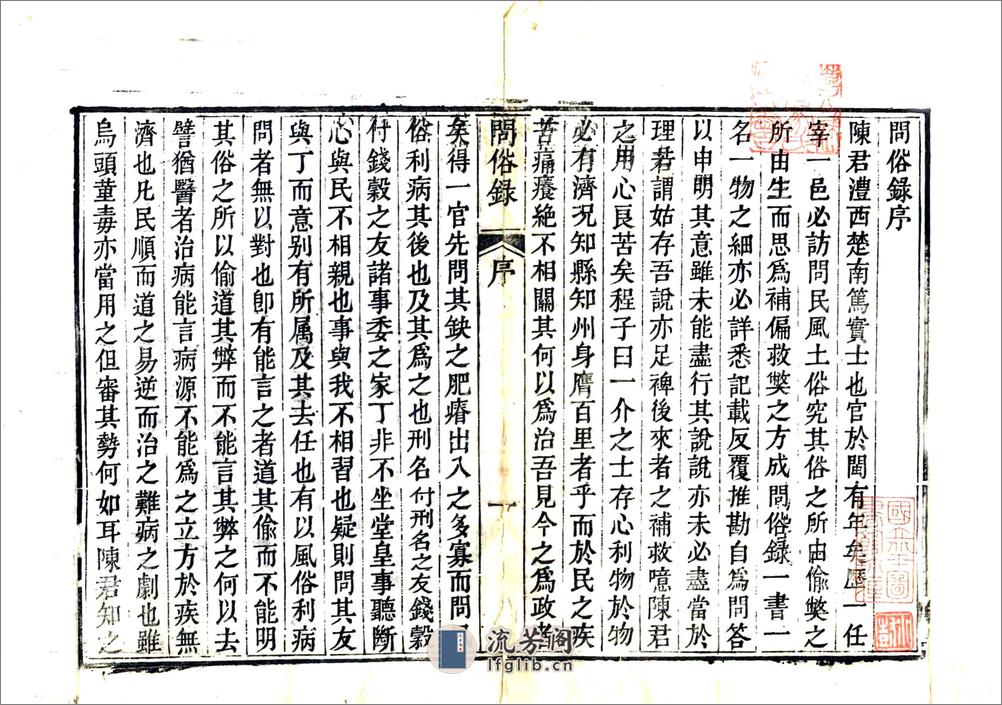 問俗錄序
陳君澧西楚南篤實士也官於閩有年矣歷一任
宰一邑必訪問民風土俗究其俗之所由偷獘之
所由生而思為補偏救獘之方成問俗錄一書一
名一物之細亦必詳悉記載反覆推勘自為問答
以申明其意雖未能盡行其說說亦未必盡當於
理若謂姑存吾說亦足裨後來者之補救噫陳君
之用心良苦矣程子曰一介之士存心利物於物
必有濟況知縣知州身膺百里者乎而於民之疾
苦痛癢絕不相關其何以為治吾見今之為政者
問俗錄 序 一
矣得一官先問其缺之肥瘠出入之多寡而問
俗利病其後也及其為之也刑名付刑名之友錢穀
付錢穀之友諸事委之家丁非不坐堂皇事聽斷
心與民不相親也事與我不相習也疑則問其友
與丁而意別有所属及其去任也有以風俗利病
問者無以對也卽有能言之者道其偷而不能明
其俗之所以偷道其弊而不能言其弊之何以去
譬猶醫者治病能言病源不能為之立方於疾無
濟也凡民順而道之易逆而治之難病之劇也雖
烏頭堇毒亦當用之但審其勢何如耳陳君知之
流芳閣
lfglib.cn